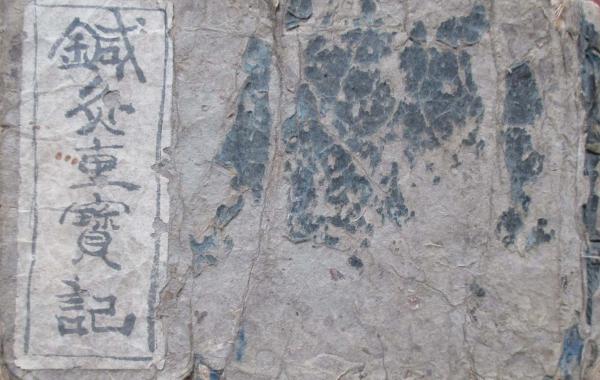 鍼灸重寳記